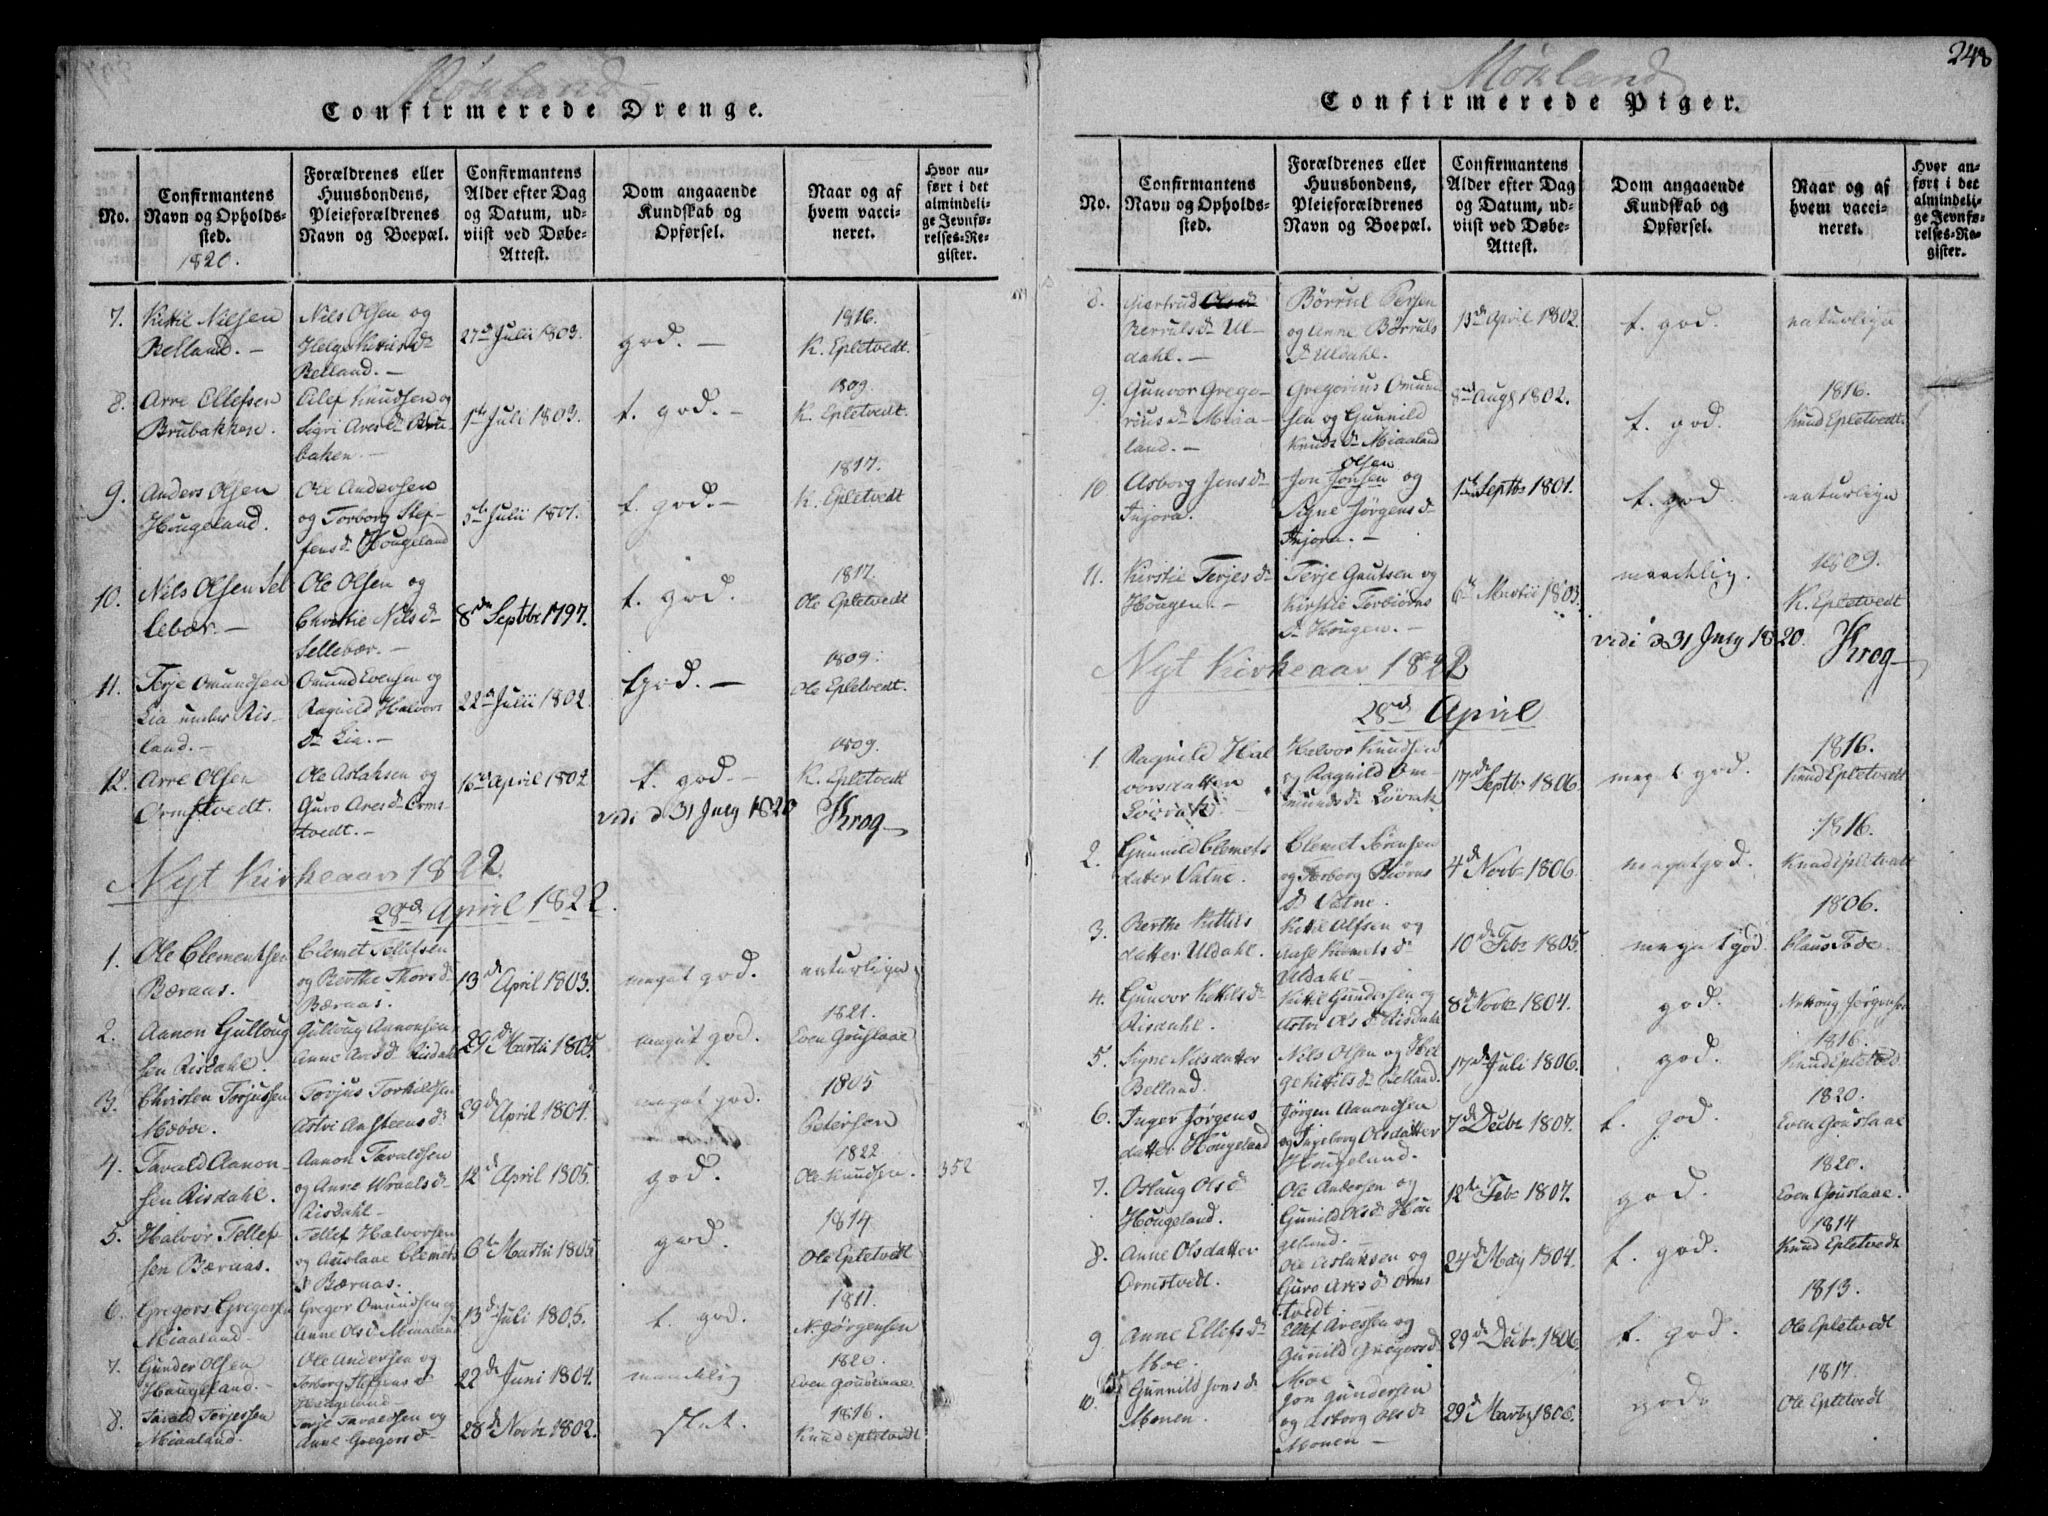 Møkland
Confirmerede Drenge.
No.
Confirmantens Navn og Opholds-sted.
1820.
Forældrenes eller Huusbondens, Pleieforældrenes Navn og Boepæl.
Confirmantens Alder efter Dag og Datum, ud-viist ved Døbe-Attest.
Dom angaaende Kundskab og Opførsel.
Naar og af hvem vacci-neret.
Hvor an-ført i det almindeli-ge Jevnfø-relses-Re-gister.
7. Kittil Nilsen Belland. —
Nils Olsen og Helge Kittilsd. Belland. —
27de Julii 1803.
god. —
1816. K. Epletvedt.
8. Arre Ellefsen Brubakken.
Eilef Knudsen og Sigri Aresd. Brubaken. —
1ste Juli 1803.
t. god. —
1809. K. Epletvedt.
9. Anders Olsen Hougeland.
Ole Andersen og Torborg Steffensd. Hougeland
5te Julii 1801.
t. god. —
1817. K. Epletvedt
10. Nils Olsen Sellebær. —
Ole Olsen og Christie Nilsd. Sellebær. —
8de Septbr 1797.
t. god.
1817. Ole Epletvedt
11. Terje Omundsen Lia under Risland. —
Omund Evensen og Ragnild Halvorsd. Lia. —
22de Julii 1802.
t. god. —
1809. Ole Epletvedt.
12. Arre Olsen Ormstvedt.
Ole Aslaksen og Guro Aresd. Ormstvedt. —
April 1802
t. god. —
1809. K. Epletvedt
vidi d 31 July 1820 Krog
Nyt Kirkeaar 1822.
28de April 1822.
1. Ole Clementsen Bæraas.
Clemet Tellefsen og Berthe Thorsd. Bæraas.
13de April 1803.
meget god.
naturlige
2. Aanon Gulloug sen Risdahl.
Gulloug Aanonsen Anne Aresd. Risdahl
29de Martii 1805.
meget god.
1821. Even Gouslaae
3. Christen Torjussen Mæboe.
Torjus Torkildsen Astri Ansteensd.
29de April 1804.
meget god.
1805 Petersen
4. Tarald Aanonsen Risdahl.
Aanon Taraldsen og Anne Wraalsd. Risdahl —
12de April 1805.
god.
1822 Ole Knudsen.
352
5. Halvor Tellefsen Bæraas.
Tellef Halvorsen og Aaslaue Clemetsd. Bæraas.
6te Martii 1805
god.
1814 Ole Epletvedt
6. Gregors Gregorsen Miaaland.
Gregor Omundsen og Anne Olsd. Miaaland
13de Juli 1805.
t. god.
1811. N. Jørgensen
7. Gunder Olsen Hougeland. —
Ole Andersen og Torborg Steffensd. Hougeland
22de Juni 1804.
maadelig
1820. Even Gouslaae
8. Tarald Terjessen Miaaland.
Terje Taraldsen og Anne Gregorsd.
28de Novbr 1802.
slet.
1816. Knud Epletvedt
248
Møkland
Confirmerede Piger.
No.
Confirmantens Navn og Opholds-sted.
Forældrenes eller Huusbondens, Pleieforældrenes Navn og Boepæl.
Confirmantens Alder efter Dag og Datum, ud-viist ved Døbe-Attest.
Dom angaaende Kundskab og Opførsel.
Naar og af hvem vacci-neret.
Hvor an-ført i det almindeli-ge Jevnfø-relses-Re-gister.
8. Giertrud Berrulsd. Uldahl. —
Børrul Persen og Anne Børrulsd. Uldahl.
13de April 1802.
t. god.
naturlige
9. Gunvor Gregoriusd. Miaaland. —
Gregorius Omundsen og Gunnild Knudsd. Miaaland
8de Aug 1802.
t. god.
1816. Knud Epletvedt.
10 Asborg Jonsd. Injora.
Jon Jonsen Olsen og Signe Jørgensd. Injora. —
1ste Septbr 1801.
t. god
naturlige
11. Kirstie Terjesd. Hougen. —
Terje Gautsen og Kirstie Torbiørnsd. Hougen. —
6te Martii 1803.
maadelig.
1809. K. Epletvedt
vidi d 31 July 1820. Krog
Nyt Kirkeaar 1822
28de April
1 Ragnild Halvorsdatter Løvrak.
Halvor Knudsen og Ragnild Omundsd. Løvrak
17de Septbr 1806.
meget god.
1816. Knud Epletvedt
2. Gunnild Clemetsdatter Vatne.
Clemet Sørensen og Torborg Biørnsd. Vatne.
4de Novbr 1806.
meget god.
1816. Knud Epletvedt
3. Berthe Kittilsdatter Uldahl.
Kittil Alfsen og Aase Clemetsd. Uldahl —
10de Febr 1805
meget god.
1806. Claus Tode.
4. Gunvor Kittilsd. Risdahl.
Kittil Gundersen og Astri Olsd. Risdahl
8de Novbr 1804.
god.
Jørgensen
5. Signe Nilsdatter Belland.
Nils Olsen og Helge Kittilsd. Belland.
17de Juli 1806.
god.
1816. Knud Epletvedt
6. Inger Jørgensdatter Hougeland
Jørgen Aanondsen og Ingeborg Olsdatter Hougeland.
7de Decbr 1807.
t. god.
1820. Even Gouslaae
7. Oslaug Olsd. Hougeland.
Ole Andersen og Gunild Olsd. Hougeland.
12te Febr 1807.
god.
1820. Even Gouslaae.
8. Anne Olsdatter Ormstvedt.
Ole Aslaksen og Guro Aresd. Ormstvedt
24de May 1804.
t. god.
1814 Knud Epletvedt
9 Anne Ellefsd. Moe.
Ellef Aressen og Gunild Gregorsd. Moe
29de Decbr 1806
t. god.
1813. Ole Epletvedt
10. Gunnild Jonsd. Monen.
Jon Gundersen og Asborg Olsd. Monen —
29de Marts 1806.
god.
1817. Ole Epletvedt